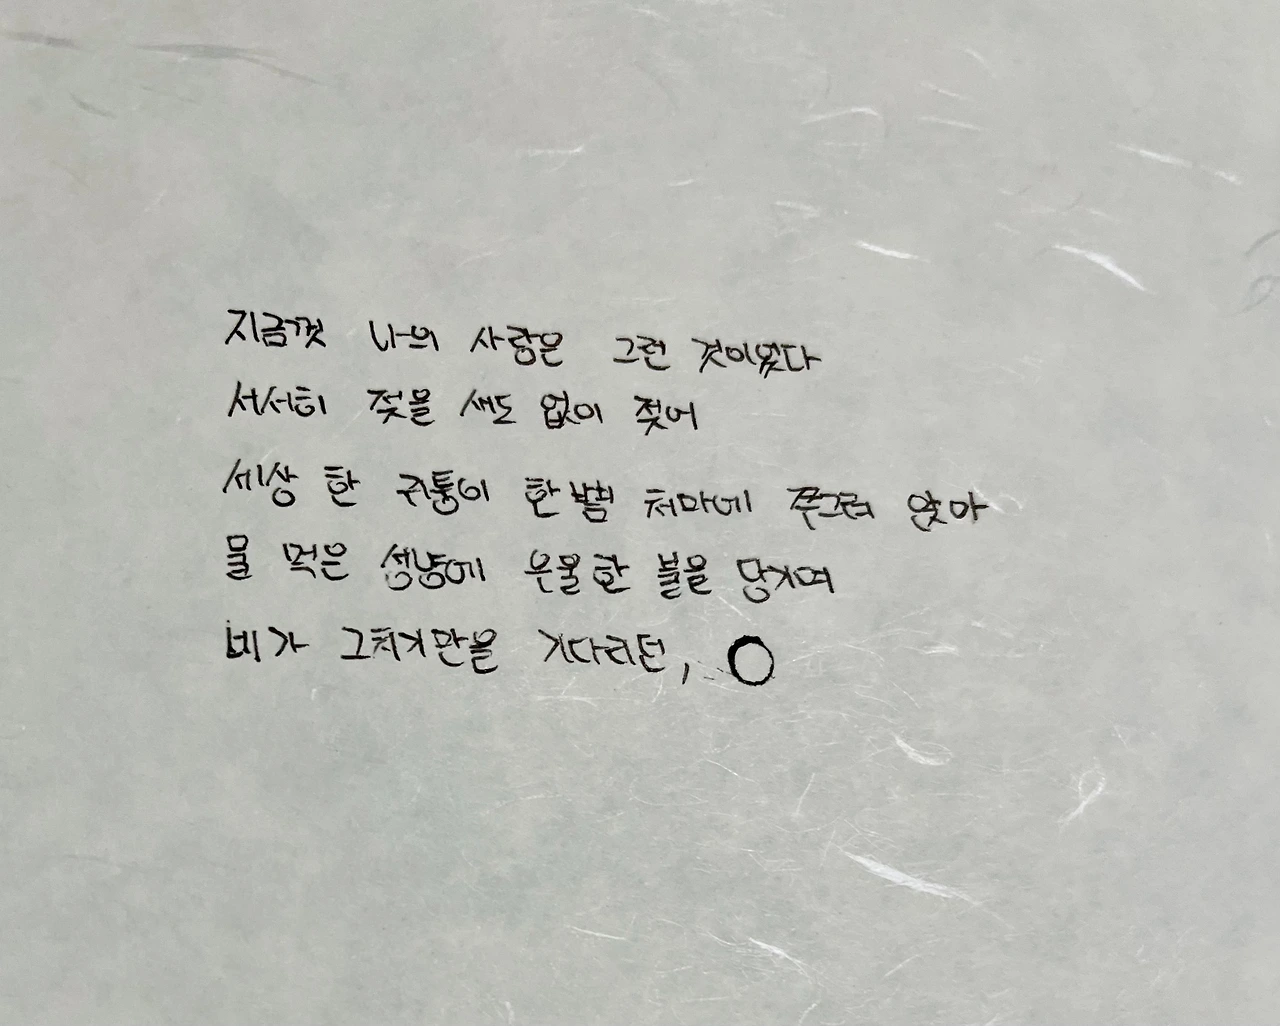 지금껏 나의 사랑은 그런 것이었다
서서히 젖을 새도 없이 젖어
세상 한 귀퉁이 한 뼘 처마에 쭈그려 앉아
물 먹은 성냥에 우울한 불을 당기며
네가 그치기만을 기다리던,